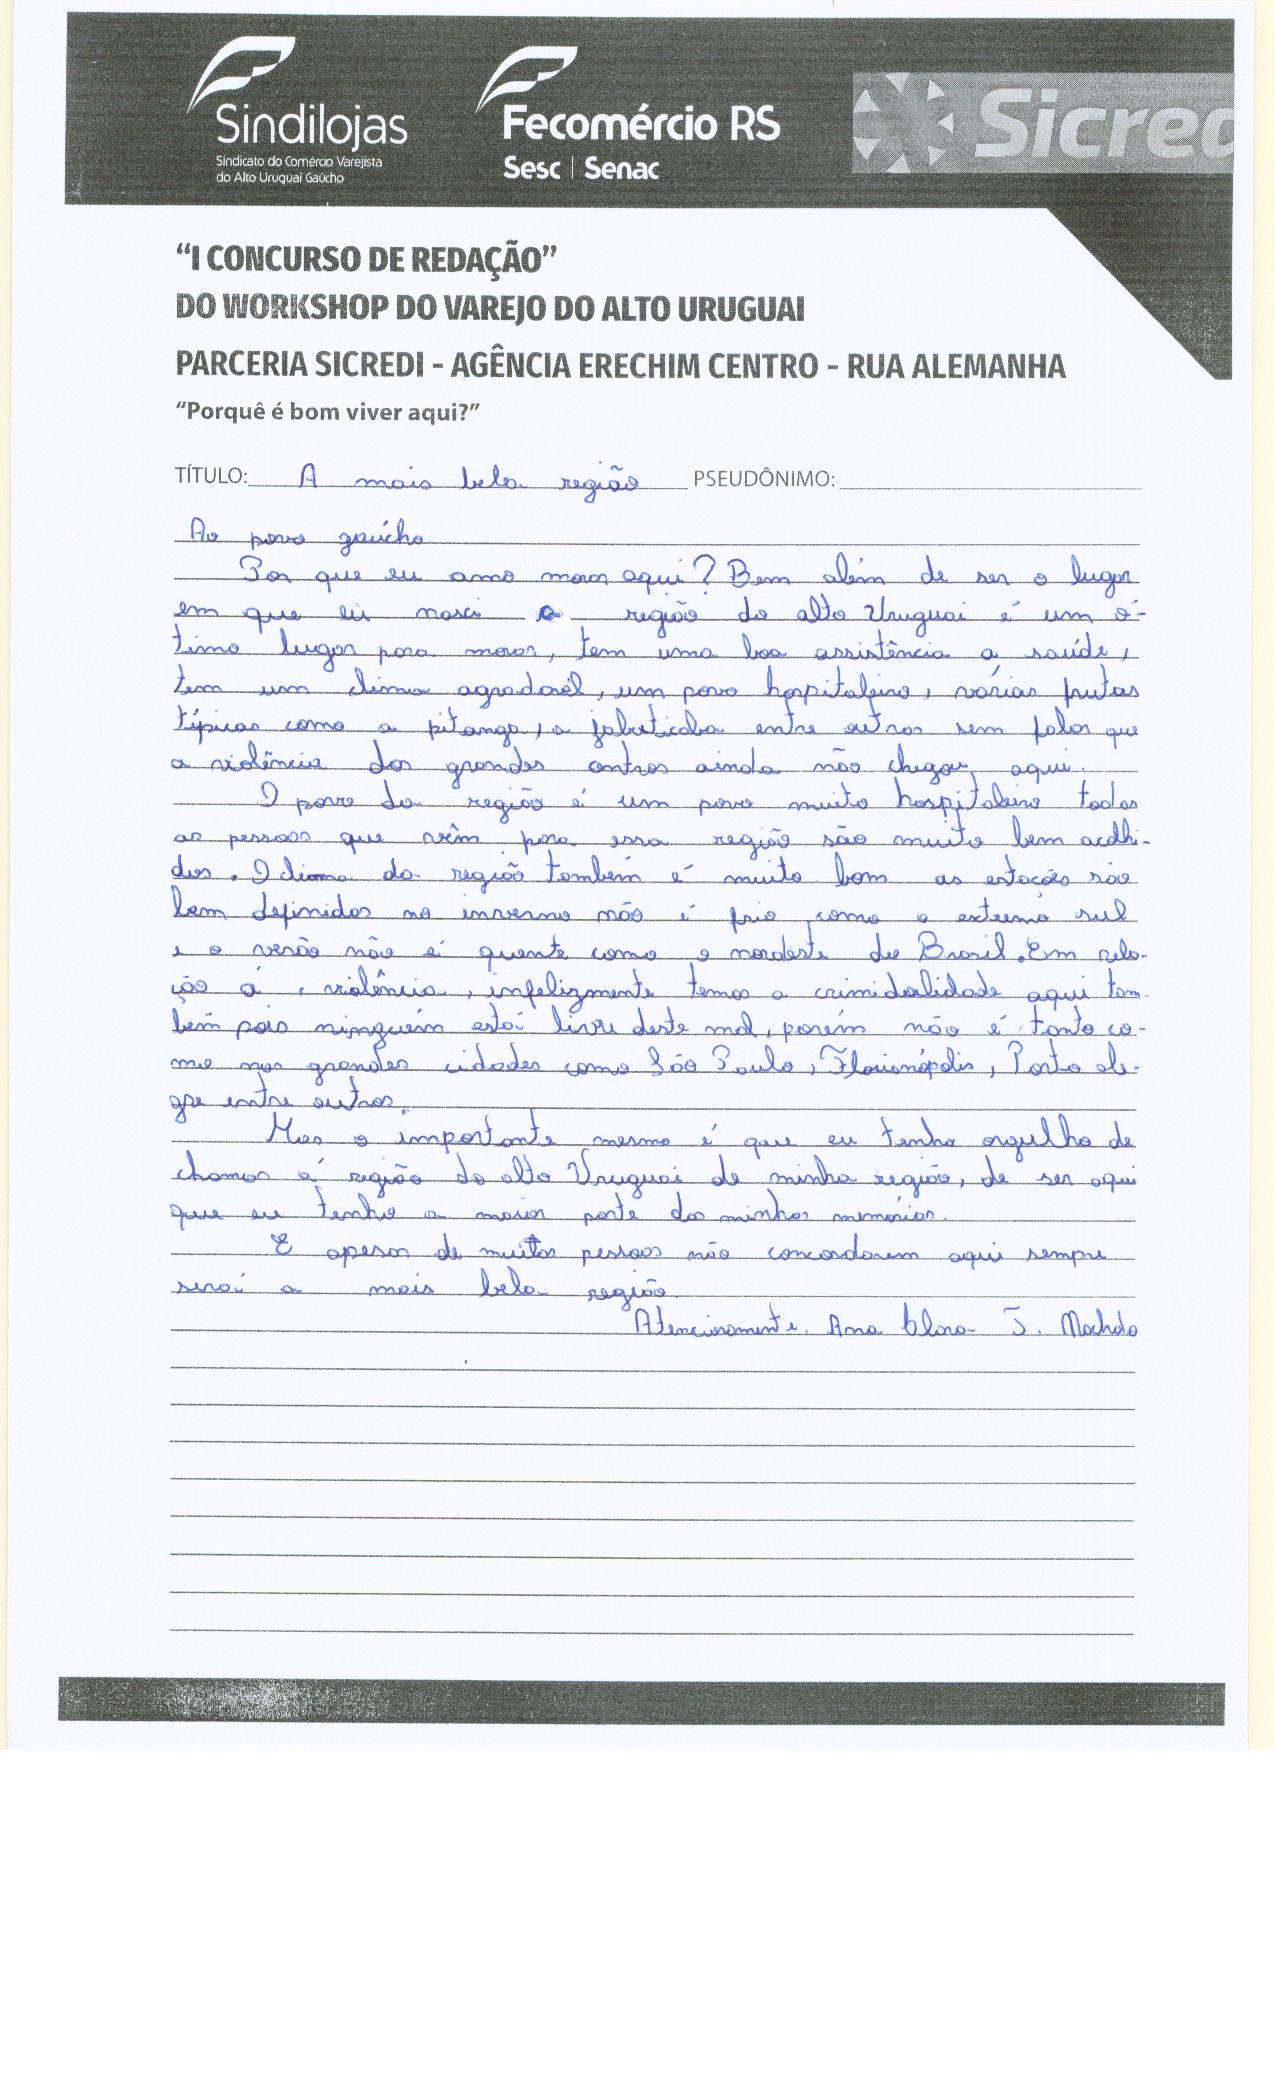 Sindilojas
Sindicato do Comércio Varejista
do Alto Uruguai Gaúcho
Fecomércio RS
Sesc | Senac
Sicred
“I CONCURSO DE REDAÇÃO”
DO WORKSHOP DO VAREJO DO ALTO URUGUAI
PARCERIA SICREDI - AGÊNCIA ERECHIM CENTRO - RUA ALEMANHA
“Porquê é bom viver aqui?”
TÍTULO: A mais bela região PSEUDÔNIMO:
Ao povo gaúcho
Por que eu amo morar aqui? Bem além de ser o lugar
em que eu nasci a região do alto Uruguai é um ó-
timo lugar para morar, tem uma boa assistência a saúde,
tem um clima agradavél, um povo hospitaleiro, várias frutas
típicas como a pitanga, a jabuticaba entre outras sem falar que
a violência dos grandes centros ainda não chegou aqui.
O povo da região é um povo muito hospitaleiro todas
as pessoas que vêm para essa região são muito bem acolhi-
dos. O clima da região também é muito bom as estações são
bem definidas no inverno não é frio como o extremo sul
e o verão não é quente como o nordeste do Brasil. Em rela-
ção á violência, infelizmente temos a crimidalidade aqui tam-
bém pois ninguém está livre deste mal, porém não é tanto co-
mo nas grandes cidades como São Paulo, Florianópolis, Porto ale-
gre entre outras.
Mas o importante mesmo é que eu tenho orgulho de
chamar á região do alto Uruguai de minha região, de ser aqui
que eu tenho a maior parte das minhas memórias.
E apesar de muitas pessoas não concordarem aqui sempre
será a mais bela região.
Atenciosamente. Ana Clara S. Machado